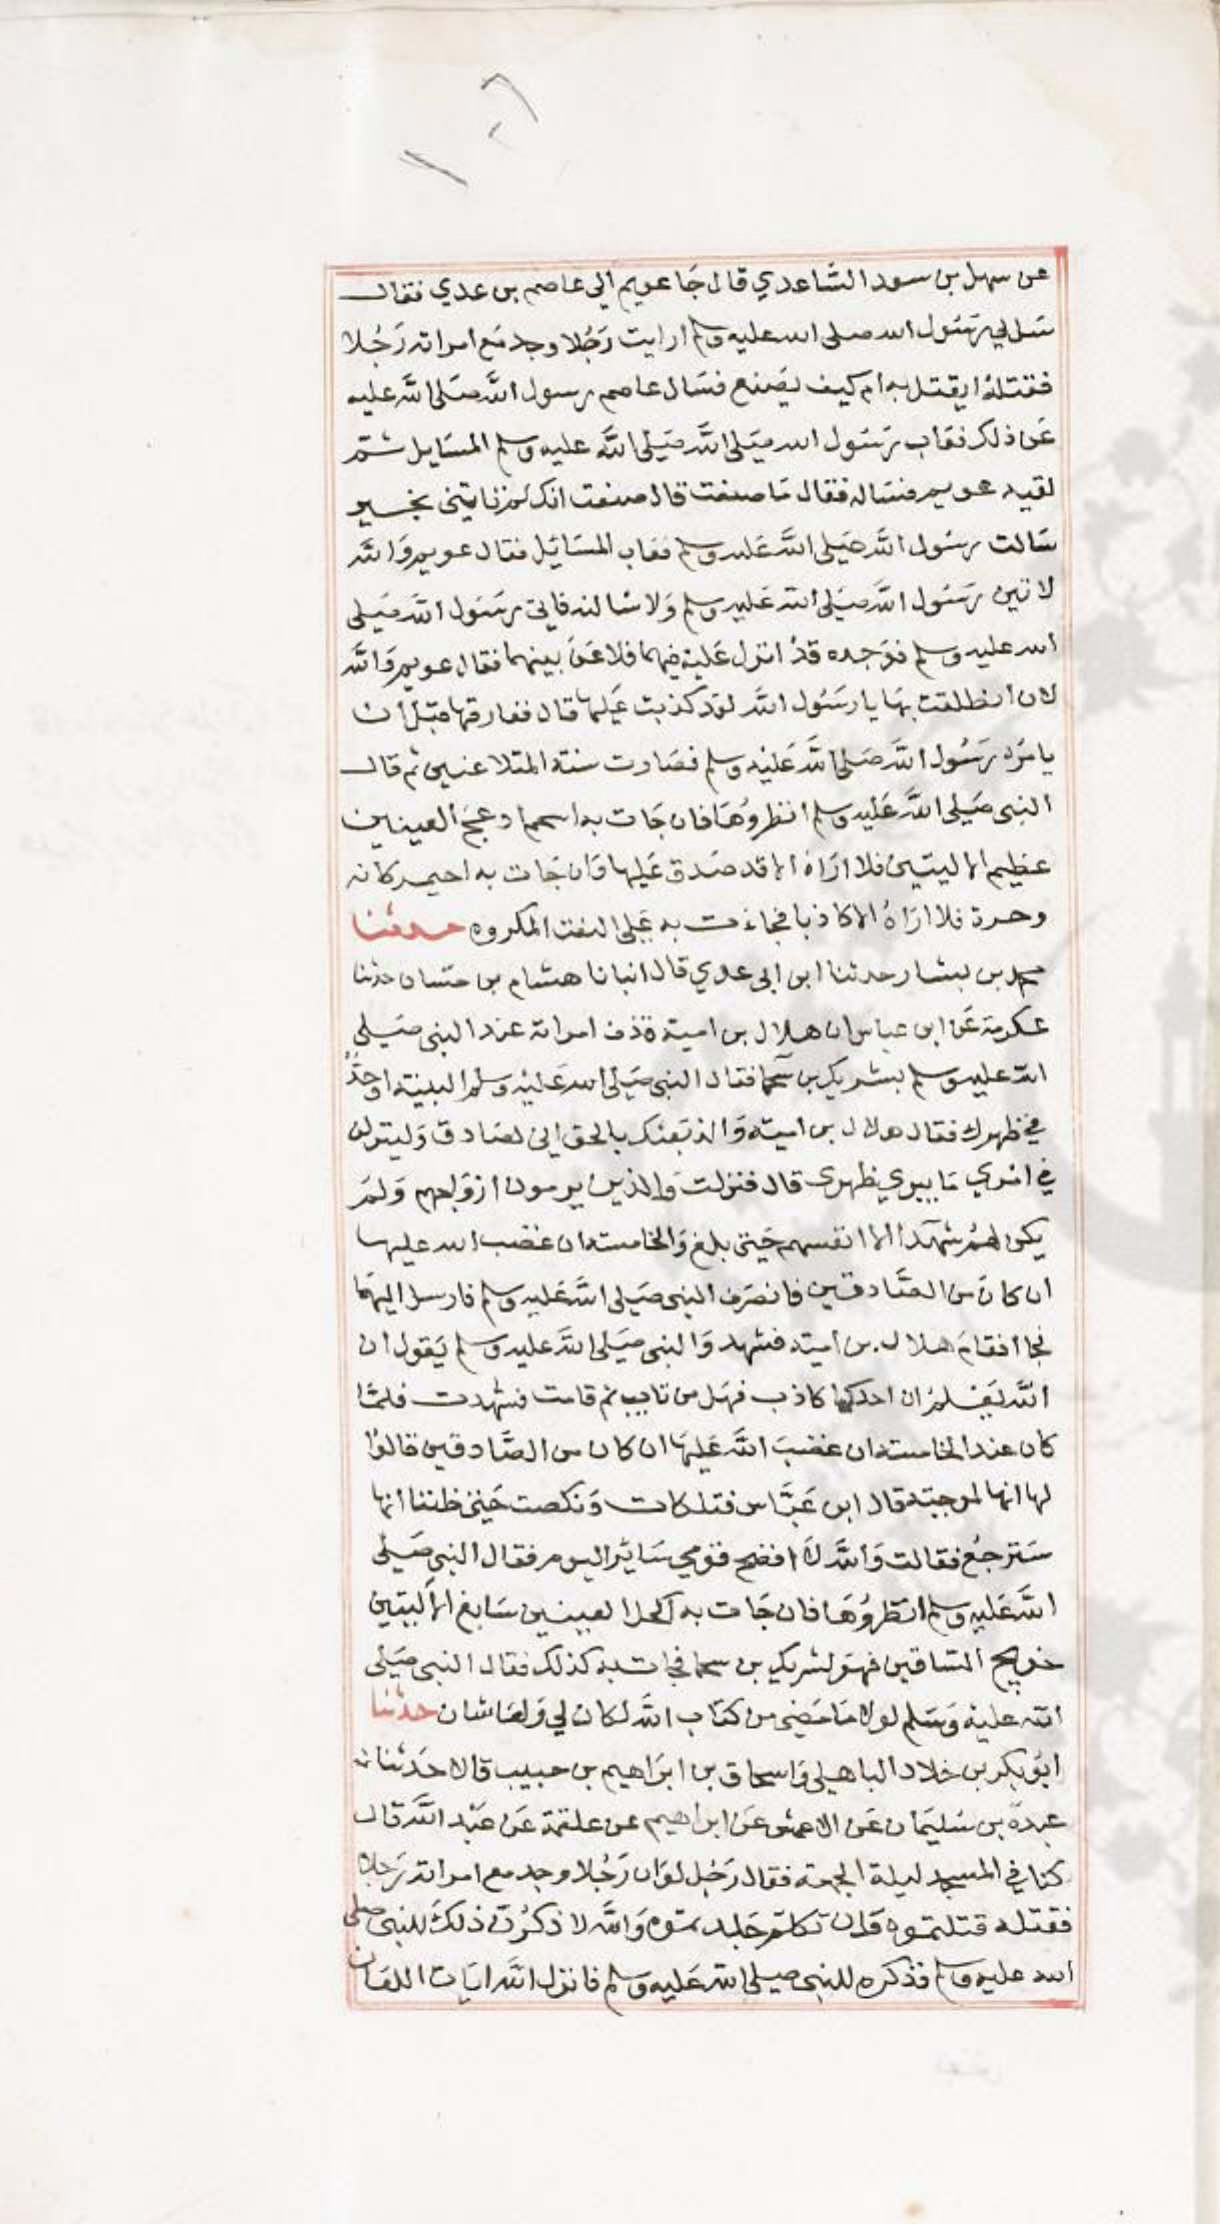 عن سهل بن سعد الساعدي قال جا عويمر الي عاصم بن عدي فقال
سل لي رسول الله صلى الله عليه وسلم ارايت رجلا وجد مع امراته رجلا
فقتله ايقتل به ام كيف يصنع فسال عاصم رسول الله صلى الله عليه
عن ذلك فعاب رسول الله صلى الله صلى الله عليه وسلم المسايل ثم
لقيه عويمر فساله فقال ما صنعت قال صنعت انك لم تاتيني بخير
سالت رسول الله صلى الله عليه وسلم فعاب المسائل فقال عويمر والله
لاتين رسول الله صلى الله عليه وسلم ولاسالنه فاتى رسول الله صلى
الله عليه وسلم فوجده قد انزل عليه فيهما فلاعن بينهما فقال عويمر والله
لان انطلقت بها يا رسول الله لقد كذبت عليها قال ففارقها قبل ان
يامره رسول الله صلى الله عليه وسلم فصارت سنة المتلاعنين ثم قال
النبي صلى الله عليه وسلم انظروها فان جات به اسحم ادعج العينين
عظيم الاليتين فلا اراه الا قد صدق عليها وان جات به احيمر كانه
وحرة فلا اراه الا كاذبا فجاءت به على النعت المكروه حدثنا
محمد بن بشار حدثنا ابن ابي عدي قال انبانا هشام بن حسان حدثنا
عكرمة عن ابن عباس ان هلال بن امية قذف امراته عند النبي صلى
الله عليه وسلم بشريك بن سحما فقال النبي صلى الله عليه وسلم البينة او حد
في ظهرك فقال هلال بن امية والذ بعثك بالحق اني لصادق ولينزلن
في امري ما يبري ظهري قال فنزلت والذين يرمون ازواجهم ولم
يكن لهم شهدا الا انفسهم حتى بلغ والخامسة ان غضب الله عليها
ان كان من الصادقين فانصرف النبي صلى الله عليه وسلم فارسل اليهما
فجاا فقام هلال بن امية فشهد والنبي صلى الله عليه وسلم يقول ان
الله يعلم ان احدكما كاذب فهل من تايب ثم قامت فشهدت فلما
كان عند الخامسة ان غضب الله عليها ان كان من الصادقين قالوا
لها انها لموجبة قال ابن عباس فتلكات ونكصت حتى ظننا انها
سترجع فقالت والله لا افضح قومي سائر اليوم فقال النبي صلى
الله عليه وسلم انظروها فان جات به اكحل العينين سابغ الاليتين
خدلج الساقين فهو لشريك بن سحما فجات به كذلك فقال النبي صلى
الله عليه وسلم لولا ما مضى من كتاب الله لكان لي ولها شان حدثنا
ابو بكر بن خلاد الباهلي واسحاق بن ابراهيم بن حبيب قالا حدثنا
عبدة بن سليمان عن الاعمش عن ابراهيم عن علقمة عن عبد الله قال
كنا في المسجد ليلة الجمعة فقال رجل لو ان رجلا وجد مع امراته رجلا
فقتله قتلتموه وان تكلم جلدتموه والله لاذكرن ذلك للنبي صلى
الله عليه وسلم فذكره للنبي صلى الله عليه وسلم فانزل الله ايات اللعان